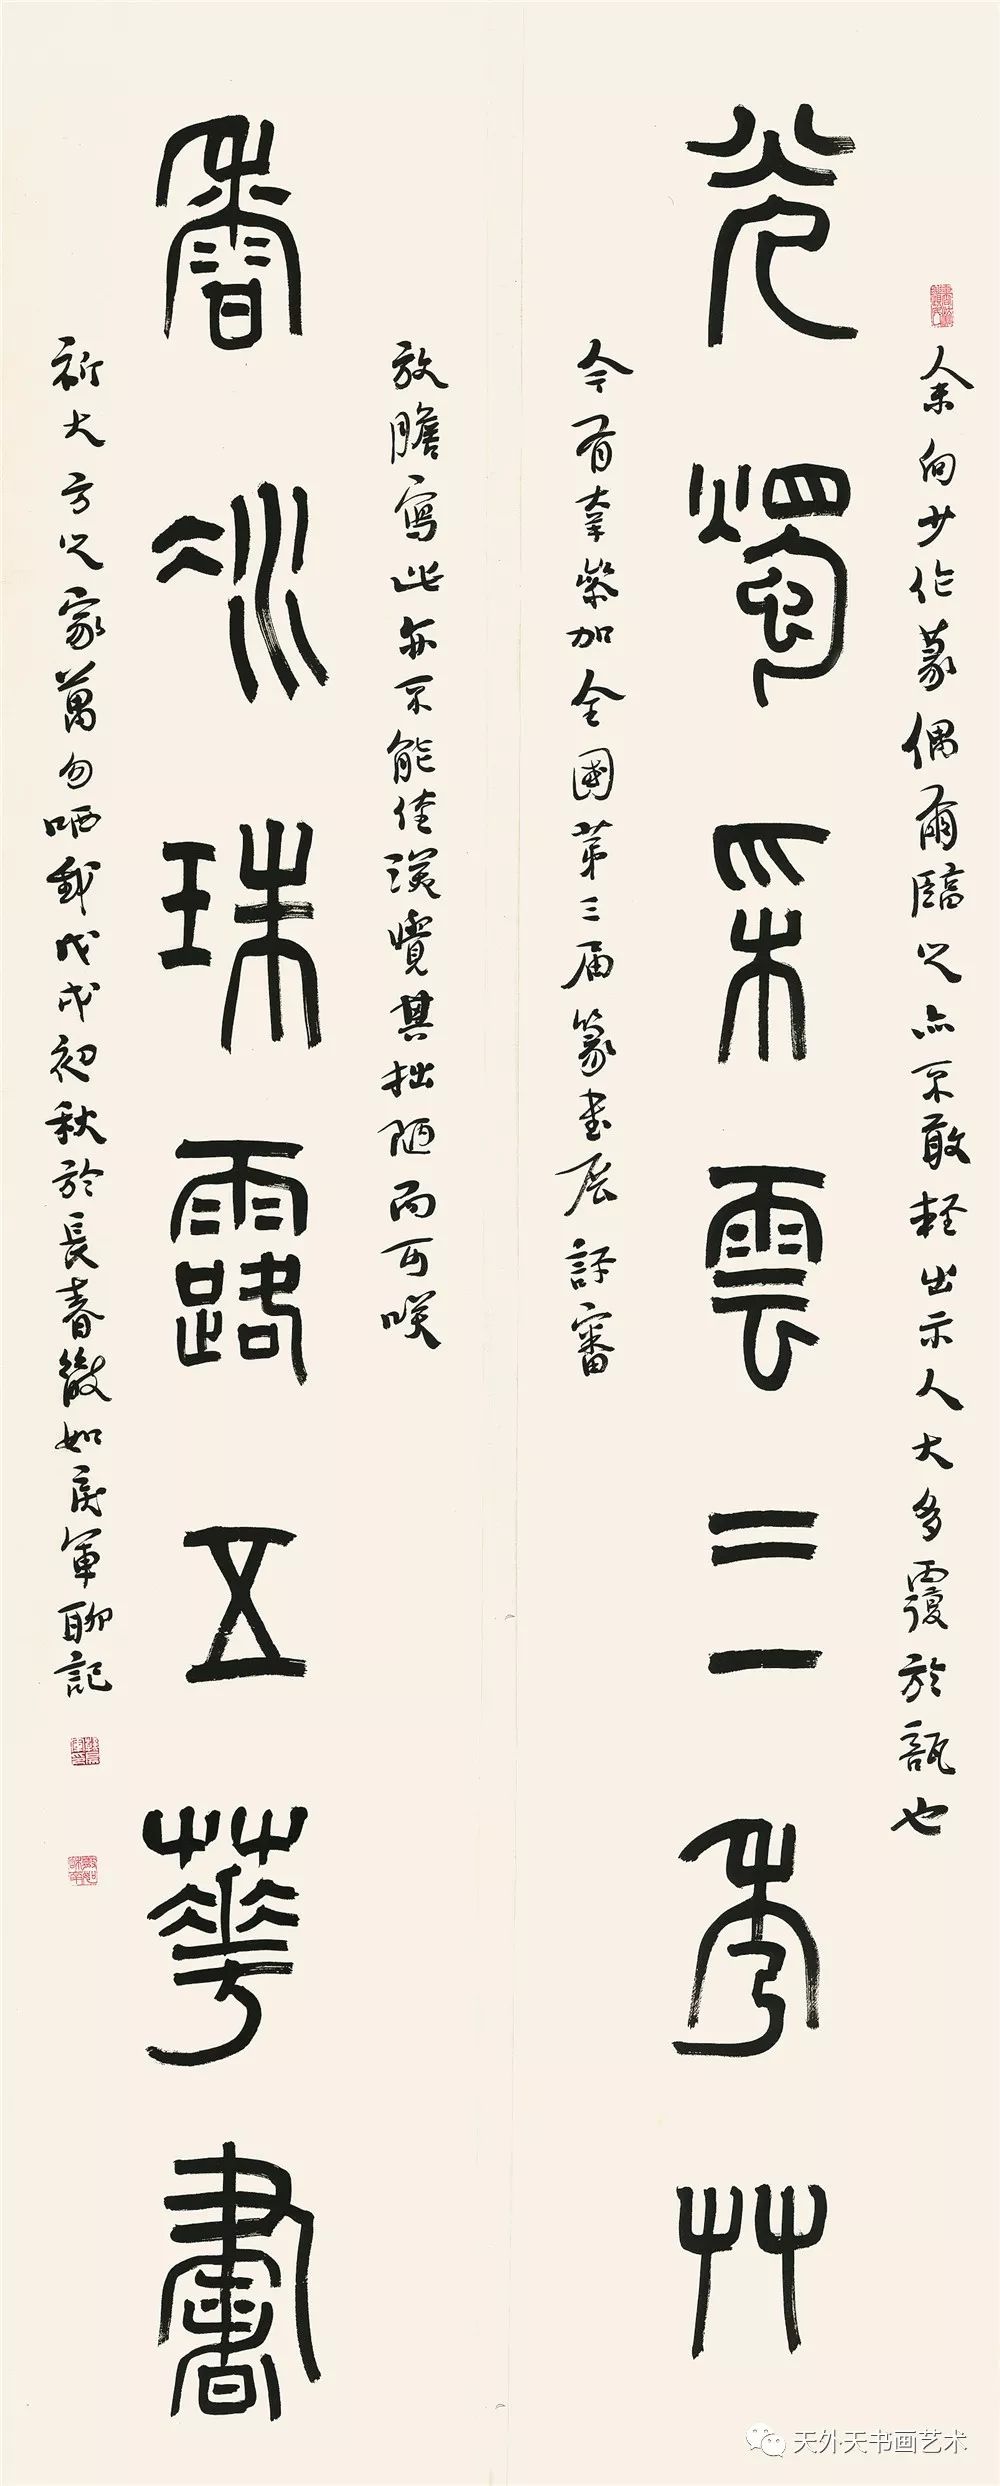 光燭采雲三秀草
香冰珠露五華書
余向少作篆偶爾臨之亦不敢輕出示人大多覆於瓿也
今有幸參加全國第三届篆书展評審
放膽寫此亦不能佳深覺其拙陋而可咲
祈大方之家萬勿哂哉戊戌初秋於長春徹如軍聊記
天外天书画艺术